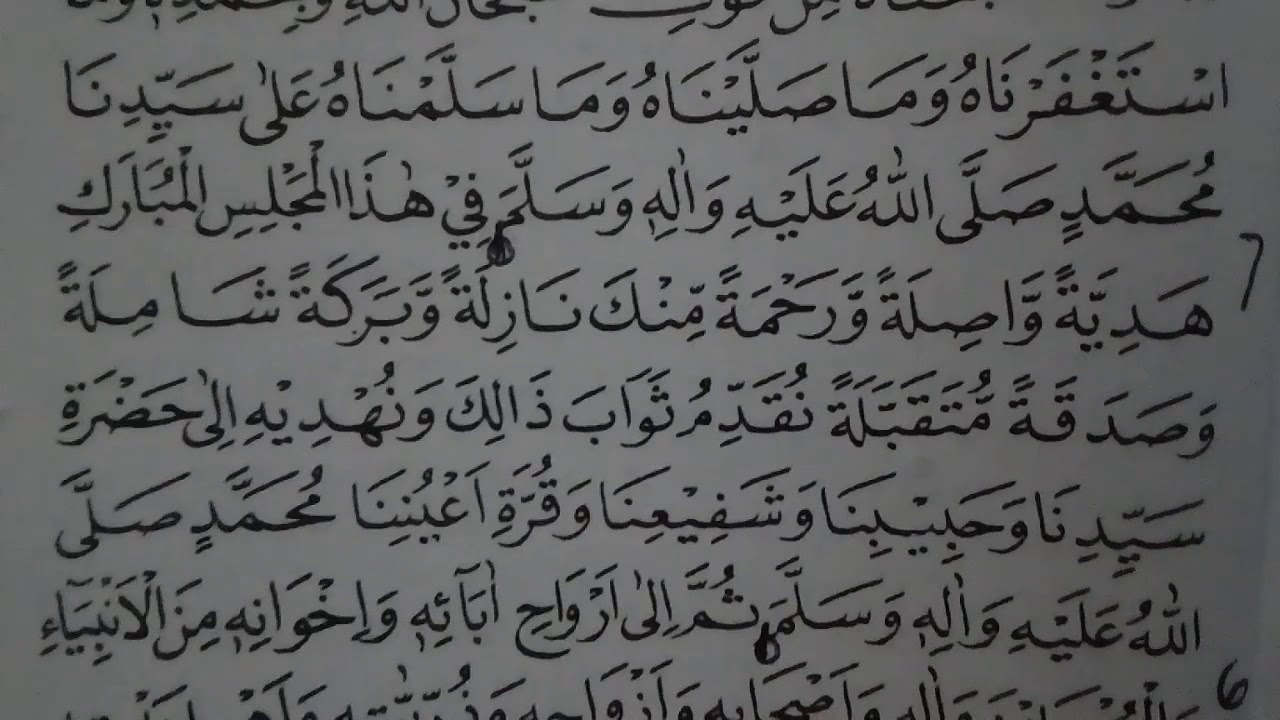 اسْتَغْفَرْنَاهُ وَمَا صَلَّيْنَاهُ وَمَا سَلَّمْنَاهُ عَلٰى سَيِّدِنَا
مُحَمَّدٍ صَلَّى اللهُ عَلَيْهِ وَاٰلِهٖ وَسَلَّمَ فِيْ هٰذَا الْمَجْلِسِ الْمُبَارَكِ
هَدِيَّةً وَّاصِلَةً وَّرَحْمَةً مِّنْكَ نَازِلَةً وَّبَرَكَةً شَامِلَةً
وَصَدَقَةً مُّتَقَبَّلَةً نُقَدِّمُ ثَوَابَ ذَالِكَ وَنُهْدِيْهِ اِلٰى حَضْرَةِ
سَيِّدِنَا وَحَبِيْبِنَا وَشَفِيْعِنَا وَقُرَّةِ اَعْيُنِنَا مُحَمَّدٍ صَلَّى
اللهُ عَلَيْهِ وَاٰلِهٖ وَسَلَّمَ ثُمَّ اِلٰى اَرْوَاحِ اٰبَآئِهٖ وَاِخْوَانِهٖ مِنَ الْاَنْبِيَآءِ
6